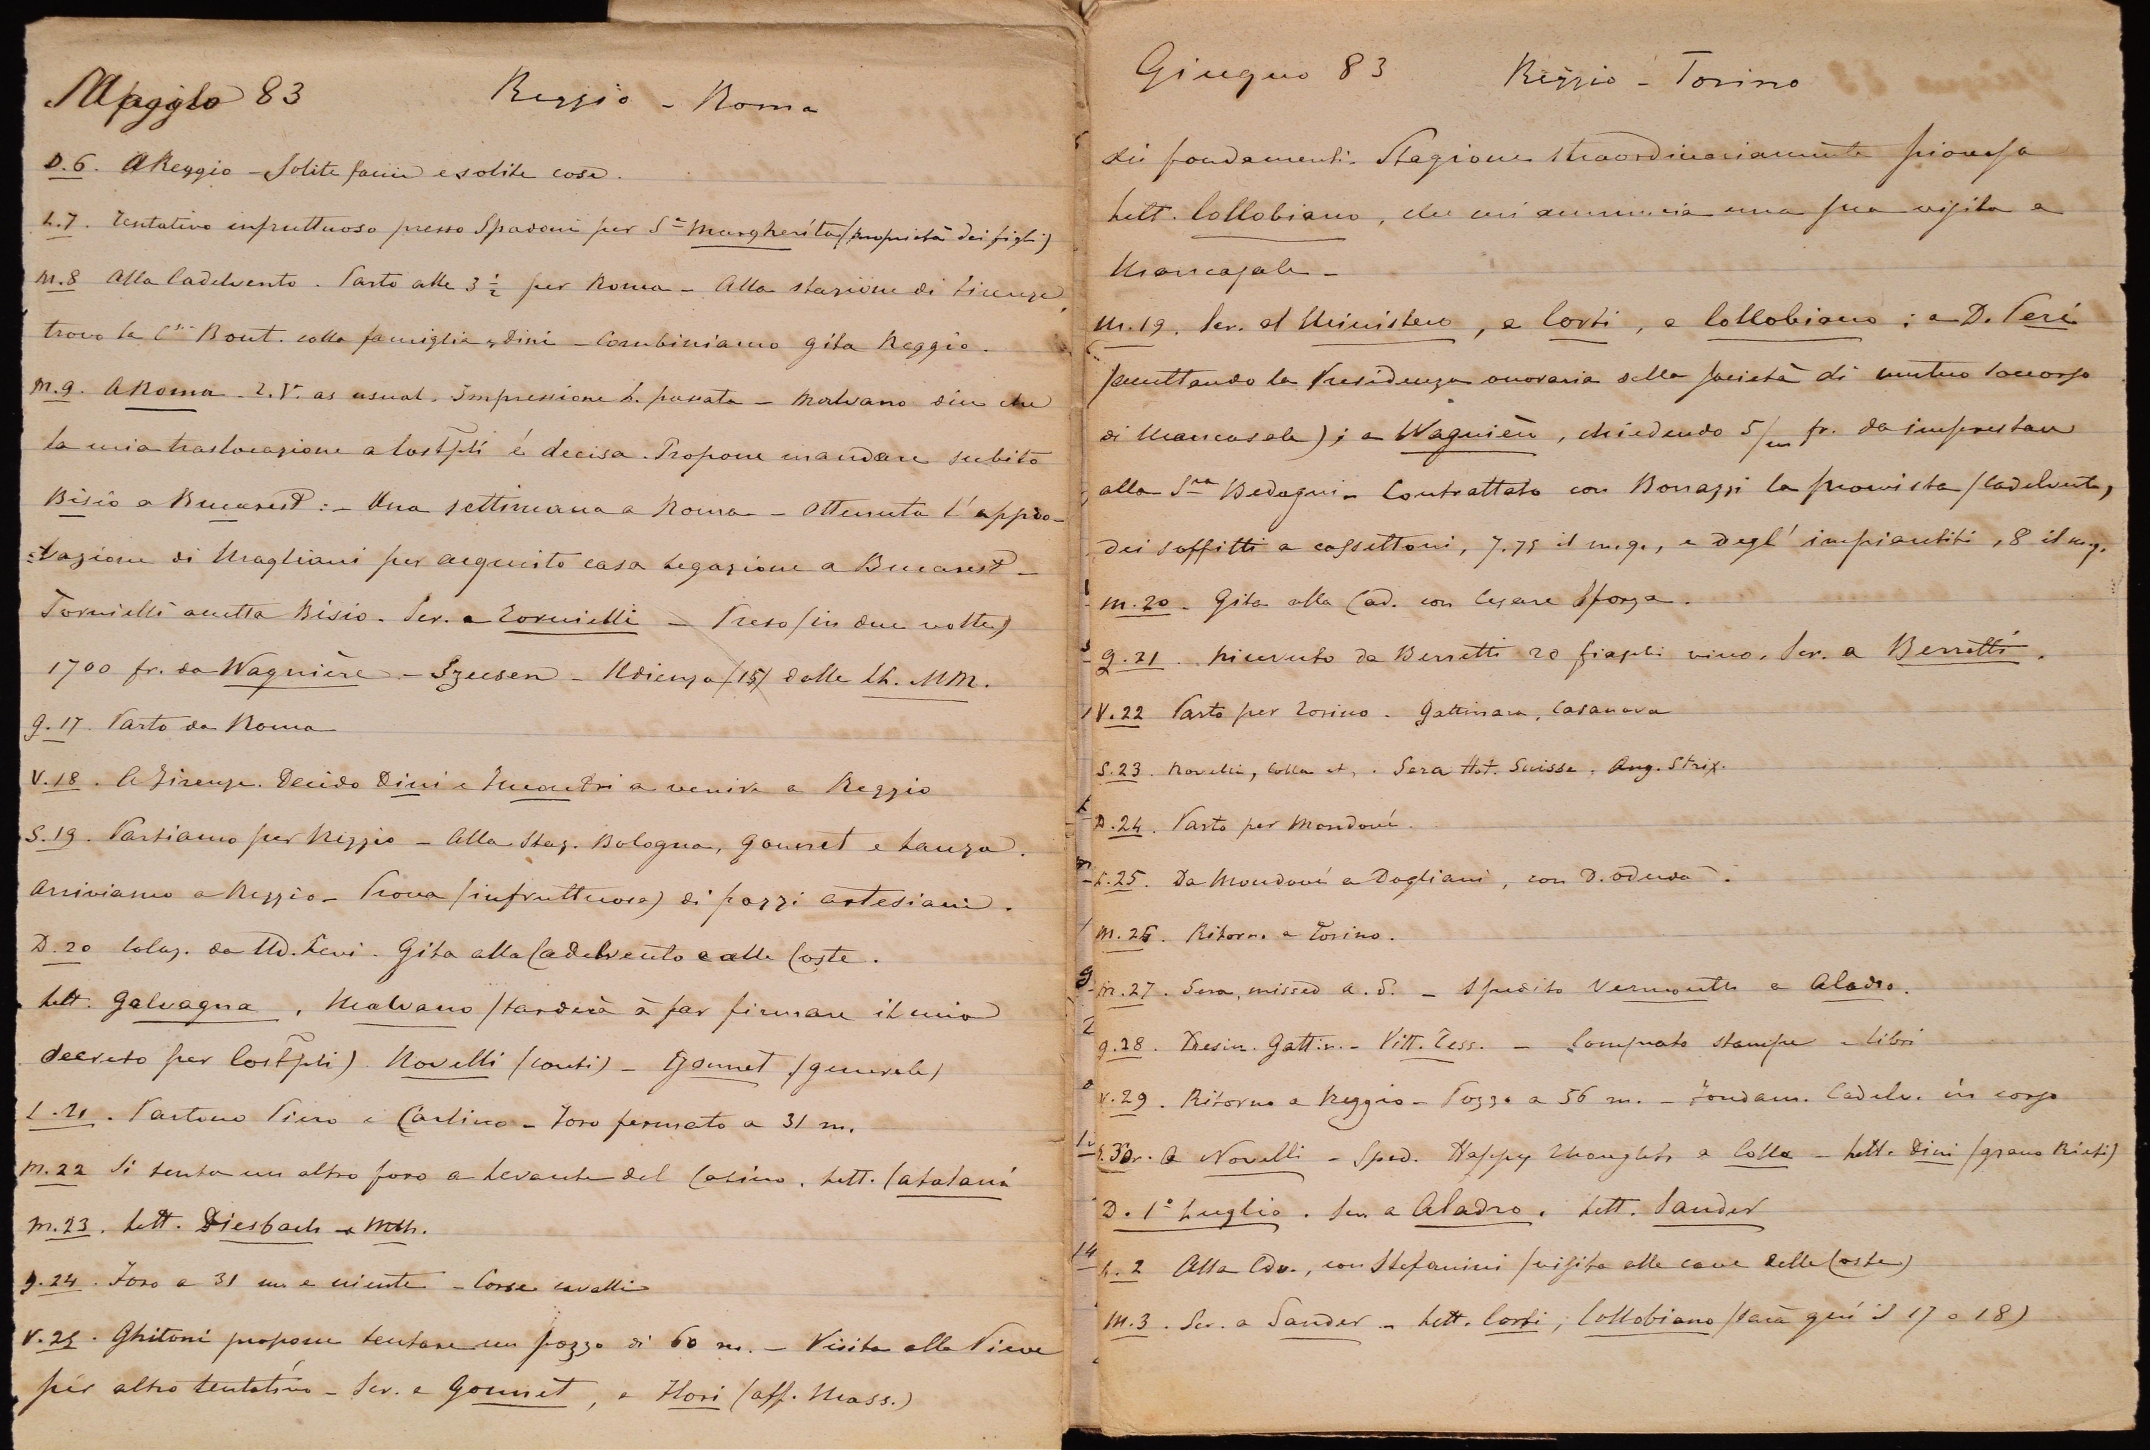 Maggio 83 Reggio - Roma
D.6. A Reggio - Solite faccie e solite cose.
L.7. Tentativo infruttuoso presso Spadoni per Sta Margherita (proprietà dei figli)
M.8 Alla Cadelvento. Parto alle 3 1/2 per Roma - Alla stazione di Firenze,
trovo la Cssa Bout. colla famiglia, Dini - Combiniamo gita Reggio.
M.9. A Roma. as usual. Impressione passata - Malvano dice che
la mia traslocazione a Costpli è decisa. Propone mandare subito
Bisio a Bucarest: - Una settimana a Roma - Ottenuta l'appro-
=vazione di Magliani per acquisto casa Legazione a Bucarest -
Tornielli accetta Bisio. Scr. a Tornielli - Preso (in due volte)
1700 fr. da Wagnière - Szecsen - Udienza (15) dalle LL. MM.
G.17. Parto da Roma
V.18. A Firenze. Decido Dini e Incontri a venire a Reggio
S.19. Partiamo per Reggio - Alla Staz. Bologna, Gounet e Lanza.
Arriviamo a Reggio - Prova (infruttuosa) di pozzi artesiani.
D.20 Colaz. da Ud. Levi. Gita alla Cadelvento e alle Coste.
Lett. Galvagna, Malvano (tarderà a far firmare il mio
decreto per Costpli) Novelli (conti) - Gounet (generale)
L.21. Partono Piero e Carlino - Foro fermato a 31 m.
M.22 Si tenta un altro foro a levante del Casino. Lett. Catalani
M.23. Lett. Diesbach
G.24. Foro a 31 m e niente - Corse cavalli
V.25. Ghitoni propone tentare un pozzo di 60 m. - Visita alla Pieve
per altro tentativo - Scr. a Gounet, a Flori (aff. Mass.)
Giugno 83 Reggio - Torino
dei fondamenti. Stagione straordinariamente piovosa
Lett. Collobiano, che mi annuncia una sua visita a
Mancasale -
M.19. Scr. al Ministero, a Corti, a Collobiano; a D. Peri
(accettando la Presidenza onoraria della società di mutuo soccorso
di Mancasale); a Wagnière, chiedendo 5/m fr. da imprestare
alla Sra Bedogni - Contrattato con Bonazzi la provvista (Cadelvento)
dei soffitti a cassettoni, 7.75 il m.q., e degl' impiantiti, 8 il m.q.
M.20. Gita alla Cad. con Cesare Sforza.
G.21. Ricevuto da Berretti 20 fiaschi vino. Scr. a Berretti.
V.22 Parto per Torino. Gattinara, Casanova
S.23. Novelli, Colla et. Sera Hot. Suisse, Ang. Strix.
D.24. Parto per Mondovì.
L.25. Da Mondovì a Dogliani, con D.
M.26. Ritorno a Torino.
M.27. Sera, missed A.S. - Spedito Vermouth a Aladro.
G.28. Desin. Gattin. - Vitt. Tess. - Comprato stampe e libri
V.29. Ritorno a Reggio - Pozzo a 56 m. - Fondam. Cadelv. in corso
S.30. Scr. a Novelli - Sped. Happy Thoughts a Colla - Lett. Dini (grano Rieti)
D. 1° Luglio. Scr. a Aladro. Lett. Sander
L.2 Alla Cdv., con Stefanini (visita alle cave delle Coste)
M.3. Scr. a Sander - Lett. Corti, Collobiano (sarà qui il 17 o 18)